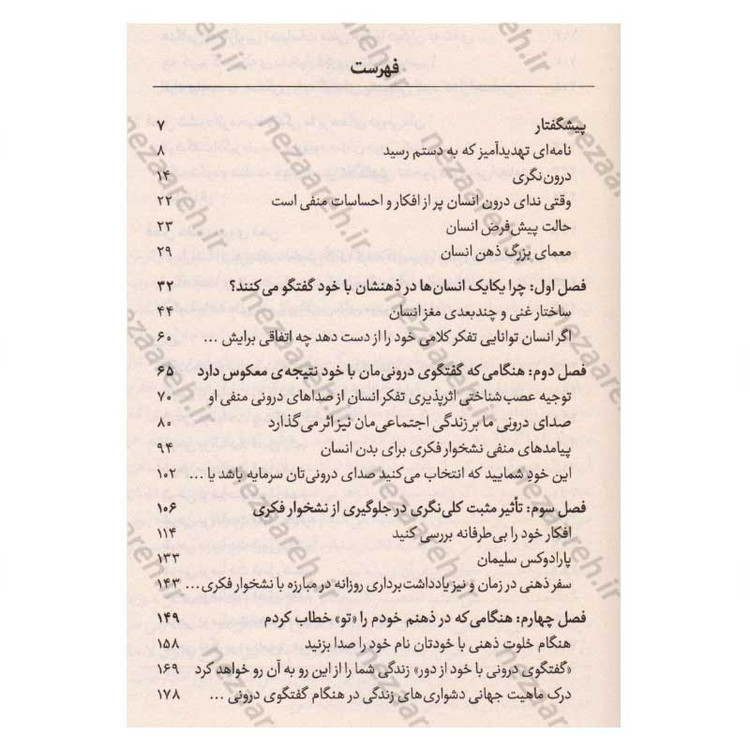 فهرست
پیشگفتار ۷
نامه‌ای تهدیدآمیز که به دستم رسید ۸
درون‌نگری ۱۴
وقتی ندای درون انسان پر از افکار و احساسات منفی است ۲۲
حالت پیش‌فرض انسان ۲۳
معمای بزرگ ذهن انسان ۲۹
فصل اول: چرا یکایک انسان‌ها در ذهنشان با خود گفتگو می‌کنند؟ ۳۲
ساختار غنی و چندبعدی مغز انسان ۴۴
اگر انسان توانایی تفکر کلامی خود را از دست دهد چه اتفاقی برایش ... ۶۰
فصل دوم: هنگامی که گفتگوی درونی‌مان با خود نتیجه‌ی معکوس دارد ۶۵
توجیه عصب‌شناختی اثرپذیری تفکر انسان از صداهای درونی منفی او ۷۰
صدای درونی ما بر زندگی اجتماعی‌مان نیز اثر می‌گذارد ۸۰
پیامدهای منفی نشخوار فکری برای بدن انسان ۹۴
این خودِ شمایید که انتخاب می‌کنید صدای درونی‌تان سرمایه باشد یا ... ۱۰۲
فصل سوم: تأثیر مثبت کلی‌نگری در جلوگیری از نشخوار فکری ۱۰۶
افکار خود را بی‌طرفانه بررسی کنید ۱۱۴
پارادوکس سلیمان ۱۳۳
سفر ذهنی در زمان و نیز یادداشت‌برداری روزانه در مبارزه با نشخوار فکری... ۱۴۳
فصل چهارم: هنگامی که در ذهنم خودم را «تو» خطاب کردم ۱۴۹
هنگام خلوت ذهنی با خودتان نام خود را صدا بزنید ۱۵۸
«گفتگوی درونی با خود از دور» زندگی شما را از این رو به آن رو خواهد کرد ۱۶۹
درک ماهیت جهانی دشواری‌های زندگی در هنگام گفتگوی درونی ... ۱۷۸
nezaareh.ir